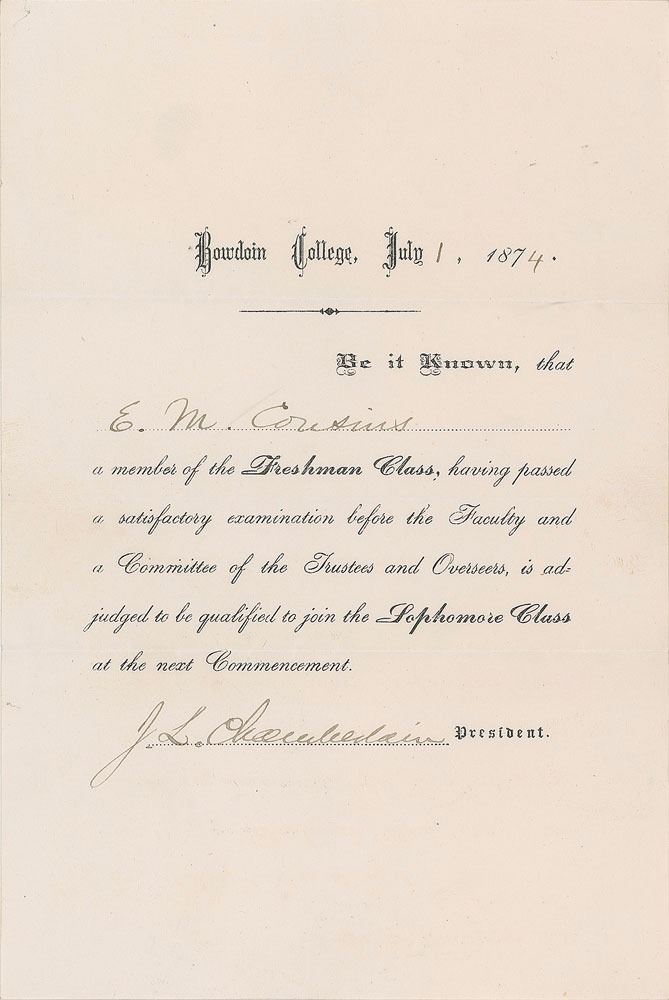 Bowdoin College, July 1, 1874.
Be it Known, that
E. M. Cousins
a member of the Freshman Class, having passed
a satisfactory examination before the Faculty and
a Committee of the Trustees and Overseers, is ad=
judged to be qualified to join the Sophomore Class
at the next Commencement.
J. L. Chamberlain President.